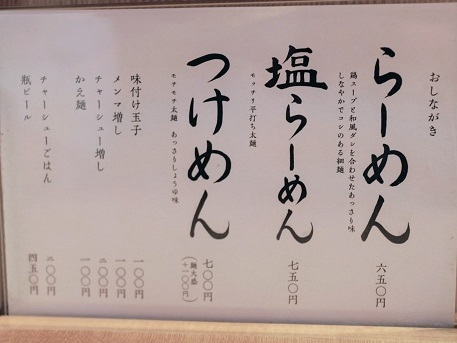 おしながき
らーめん 六五〇円
鶏スープと和風ダシを合わせたあっさり味
しなやかでコシのある細麺
塩らーめん 七五〇円
モッチリ平打ち太麺
つけめん 七〇〇円
(麺大盛 +一〇〇円)
モチモチ太麺 あっさりしょうゆ味
味付け玉子 一〇〇円
メンマ増し 一〇〇円
チャーシュー増し 二〇〇円
かえ麺 一〇〇円
チャーシューごはん 二〇〇円
瓶ビール 四五〇円